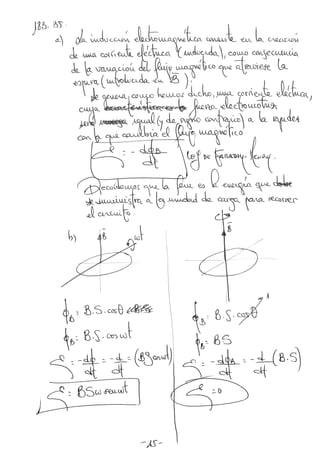 183. 35.
a) La inducción electromagnética consiste en la creación
de una corriente eléctrica (inducida), como consecuencia
de la variación del flujo magnético que atraviesa la
espira (introducida en B)
Se genera, como hemos dicho, una corriente eléctrica,
cuya fuerza electromotriz
será igual (y de signo contrario) a la rapidez
con la que cambia el flujo magnético
ε = - dΦB / dt Ley de Faraday-Lenz.
Recordamos que la fem es la energía que
se suministra a la unidad de carga para recorrer
el circuito.
b) B ωt B
ΦB = B.S. cosθ
ΦB = B.S. cos ωt
ε = -dΦ/dt = -d/dt = (BS cos ωt)
ε = BSω sen ωt
ΦB = B.S. cosθ 1
ΦB = BS
ε = -dΦB/dt = -d/dt (B.S)
ε = 0
-15-